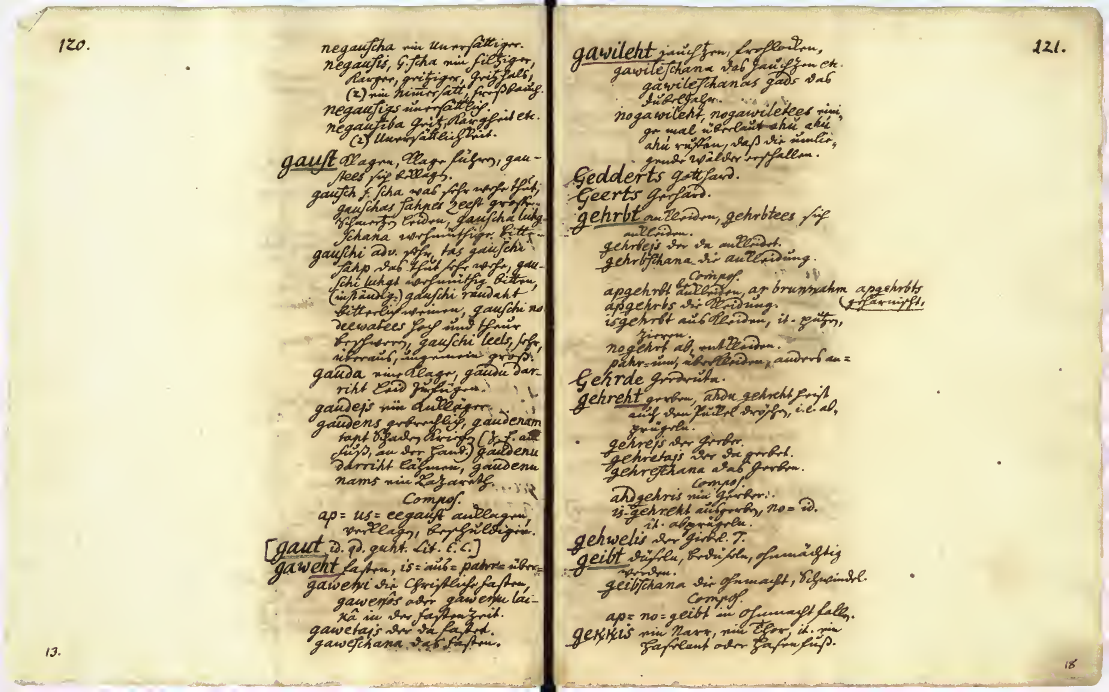 120.
negauscha ein Unersättiger.
negausis, G. scha ein filziger,
karger, geitziger, Geitzhals,
(2) ein Nimmersatt, Fraßbauch.
negausigs unersättlich.
negausiba Geitz, Kargheit etc.
(2) Unersättlichkeit.
gaust klagen, Klage führen, gau-
stees sich beklagen.
gausch f. scha was sehr wehe thut,
gauschas sahpes zeest große
Schmertzen leiden, gauscha luhg-
schana wehmüthige Bitte.
gauschi adv. sehr, tas gauschi
sahp das thut sehr wehe, gau-
schi luhgt wehmüthig bitten,
(inständig.) gauschi raudaht
bitterlich weinen, gauschi no
deewatees hoch und theur
beschweren, gauschi leels, sehr,
überaus, ungemein groß.
gauda eine Klage, gaudu dar-
riht Leid zufügen.
gaudejs ein Ankläger.
gaudens gebrechlich, gaudenam
tapt Schaden kriegen (z. E. am
Fuß, an der Hand.) gaudenu
darriht lähmen, gaudenu
nams ein Lazareth.
Compos.
ap= us= eegaust anklagen,
verklagen, beschuldigen.
[gaut id. qd. guht. Lit. E. L.]
gaweht fasten, is= aus= pahr= über=
gaweni die Christliche Fasten,
gawenôs oder gawenu lai-
kâ in der Fasten Zeit.
gawetajs der da fastet.
gaweschana das Fasten.
13.
121.
gawileht jauchtzen, frohlocken,
gawileschana das Jauchzen etc.
gawileschanas gads das
Jubeljahr.
nogawileht, nogawiletees eini-
ge mal überlaut ahu ahu
ahu ruffen, daß die umlie-
gende Wälder erschallen.
Gedderts Gotthard.
Geerts Gerhard.
gehrbt ankleiden, gehrbtees sich
ankleiden.
gehrbejs der da ankleidet.
gehrbschana die Ankleidung.
Compos.
apgehrbt ankleiden, ar brunnahm apgehrbts
apgehrbs die Kleidung. (geharnischt.
isgehrbt auskleiden, it. putzen,
zieren.
nogehrt ab, entkleiden.
pahr= um, überkleiden, anders an=
Gehrde Gerdruta.
gehreht gerben, ahdu gehreht heist
auch den Puckel dreschen, i.e. ab-
prügeln.
gehrejs der Gerber.
gehretajs der da gerbet.
gehreschana das Gerben.
Compos.
ahdgehris ein Gerber.
is-gehreht ausgerben, no= id.
it. abprügeln.
gehwelis der Giebel. T.
geibt düseln, bedüseln, ohnmächtig
werden.
geibschana die Ohnmacht, Schwindel.
Compos.
ap= no= geibt in Ohnmacht fallen.
gekkis ein Narr, ein Thor, it. ein
Haselant oder Hasenfuß.
18